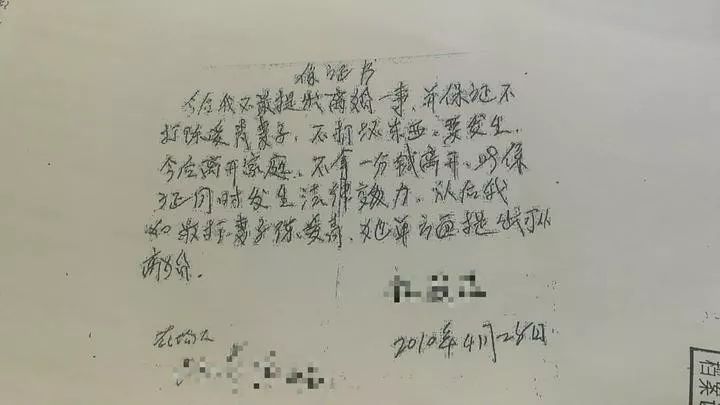 保证书
今后我不敢提出离婚一事,并保证不
打陈爱青妻子,不打坏东西。要发生
今后离开家庭,不拿一分钱离开。此保
证同时发生法律效力。从后我
如敢打妻子陈爱青,她单方面提出我可以
离婚。
在场人
2010年4月28日
档案